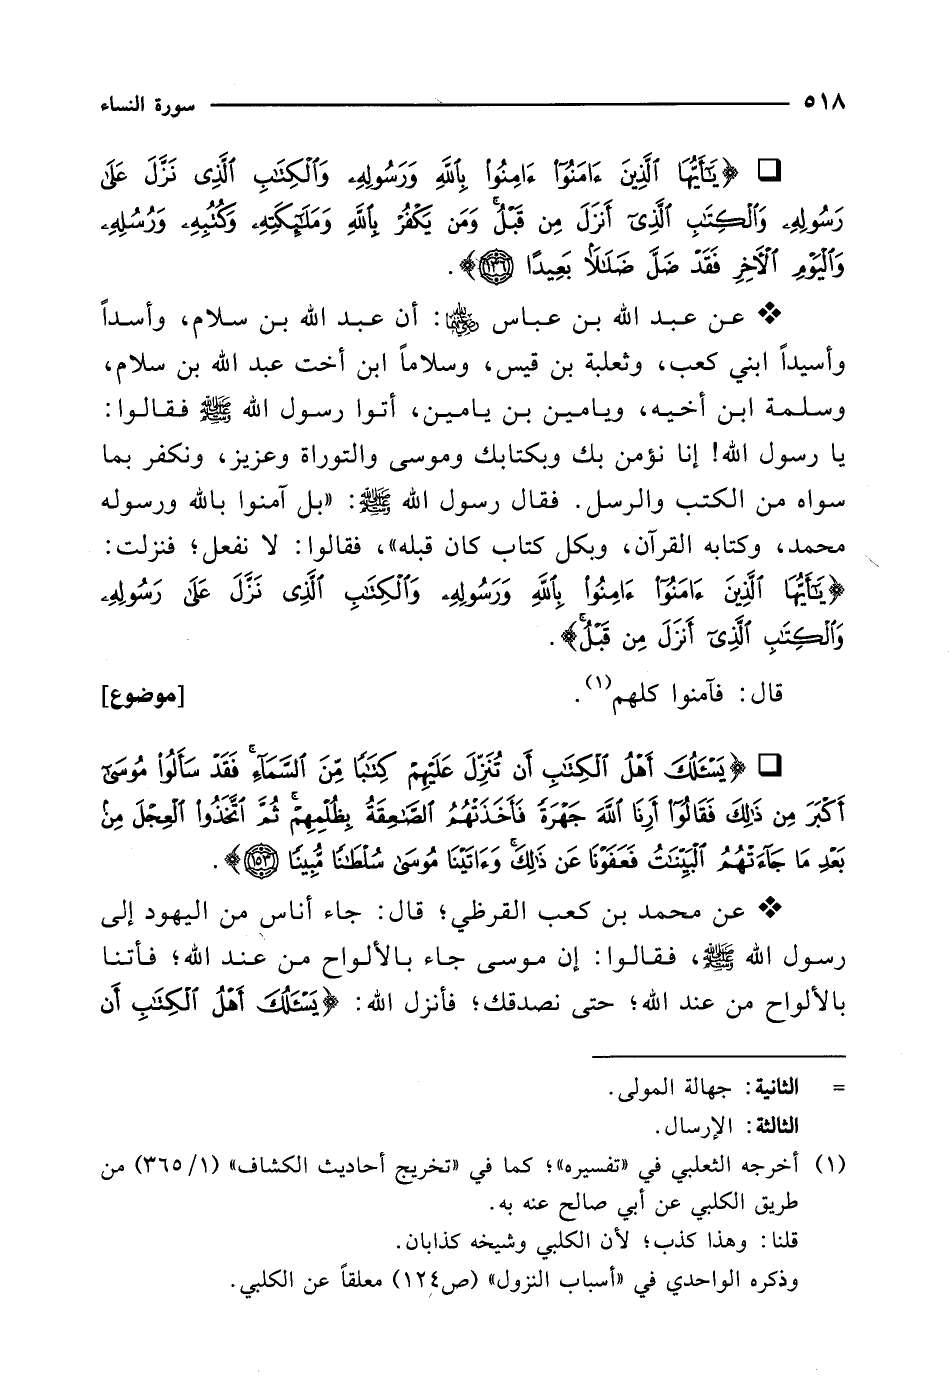 ٥١٨ سورة النساء
❑ ﴿يَـٰٓأَيُّهَا ٱلَّذِينَ ءَامَنُوٓا۟ ءَامِنُوا۟ بِٱللَّهِ وَرَسُولِهِۦ وَٱلْكِتَـٰبِ ٱلَّذِى نَزَّلَ عَلَىٰ
رَسُولِهِۦ وَٱلْكِتَـٰبِ ٱلَّذِىٓ أَنزَلَ مِن قَبْلُ ۚ وَمَن يَكْفُرْ بِٱللَّهِ وَمَلَـٰٓئِكَتِهِۦ وَكُتُبِهِۦ وَرُسُلِهِۦ
وَٱلْيَوْمِ ٱلْـَٔاخِرِ فَقَدْ ضَلَّ ضَلَـٰلًۢا بَعِيدًا ١٣٦﴾.
❖ عن عبد الله بن عباس رضي الله عنهما: أن عبد الله بن سلام، وأسداً
وأسيداً ابني كعب، وثعلبة بن قيس، وسلاماً ابن أخت عبد الله بن سلام،
وسلمة ابن أخيه، ويامين بن يامين، أتوا رسول الله ﷺ فقالوا:
يا رسول الله! إنا نؤمن بك وبكتابك وموسى والتوراة وعزيز، ونكفر بما
سواه من الكتب والرسل. فقال رسول الله ﷺ: «بل آمنوا بالله ورسوله
محمد، وكتابه القرآن، وبكل كتاب كان قبله»، فقالوا: لا نفعل؛ فنزلت:
﴿يَـٰٓأَيُّهَا ٱلَّذِينَ ءَامَنُوٓا۟ ءَامِنُوا۟ بِٱللَّهِ وَرَسُولِهِۦ وَٱلْكِتَـٰبِ ٱلَّذِى نَزَّلَ عَلَىٰ رَسُولِهِۦ
وَٱلْكِتَـٰبِ ٱلَّذِىٓ أَنزَلَ مِن قَبْلُ ۚ﴾.
قال: فآمنوا كلهم(١). [موضوع]
❑ ﴿يَسْـَٔلُكَ أَهْلُ ٱلْكِتَـٰبِ أَن تُنَزِّلَ عَلَيْهِمْ كِتَـٰبًا مِّنَ ٱلسَّمَآءِ ۚ فَقَدْ سَأَلُوا۟ مُوسَىٰٓ
أَكْبَرَ مِن ذَٰلِكَ فَقَالُوٓا۟ أَرِنَا ٱللَّهَ جَهْرَةً فَأَخَذَتْهُمُ ٱلصَّـٰعِقَةُ بِظُلْمِهِمْ ۚ ثُمَّ ٱتَّخَذُوا۟ ٱلْعِجْلَ مِنۢ
بَعْدِ مَا جَآءَتْهُمُ ٱلْبَيِّنَـٰتُ فَعَفَوْنَا عَن ذَٰلِكَ ۚ وَءَاتَيْنَا مُوسَىٰ سُلْطَـٰنًا مُّبِينًا ١٥٣﴾.
❖ عن محمد بن كعب القرظي؛ قال: جاء أناس من اليهود إلى
رسول الله ﷺ، فقالوا: إن موسى جاء بالألواح من عند الله؛ فأتنا
بالألواح من عند الله؛ حتى نصدقك؛ فأنزل الله: ﴿يَسْـَٔلُكَ أَهْلُ ٱلْكِتَـٰبِ أَن
= الثانية: جهالة المولى.
الثالثة: الإرسال.
(١) أخرجه الثعلبي في «تفسيره»؛ كما في «تخريج أحاديث الكشاف» (٣٦٥/١) من
طريق الكلبي عن أبي صالح عنه به.
قلنا: وهذا كذب؛ لأن الكلبي وشيخه كذابان.
وذكره الواحدي في «أسباب النزول» (ص١٢٤) معلقاً عن الكلبي.